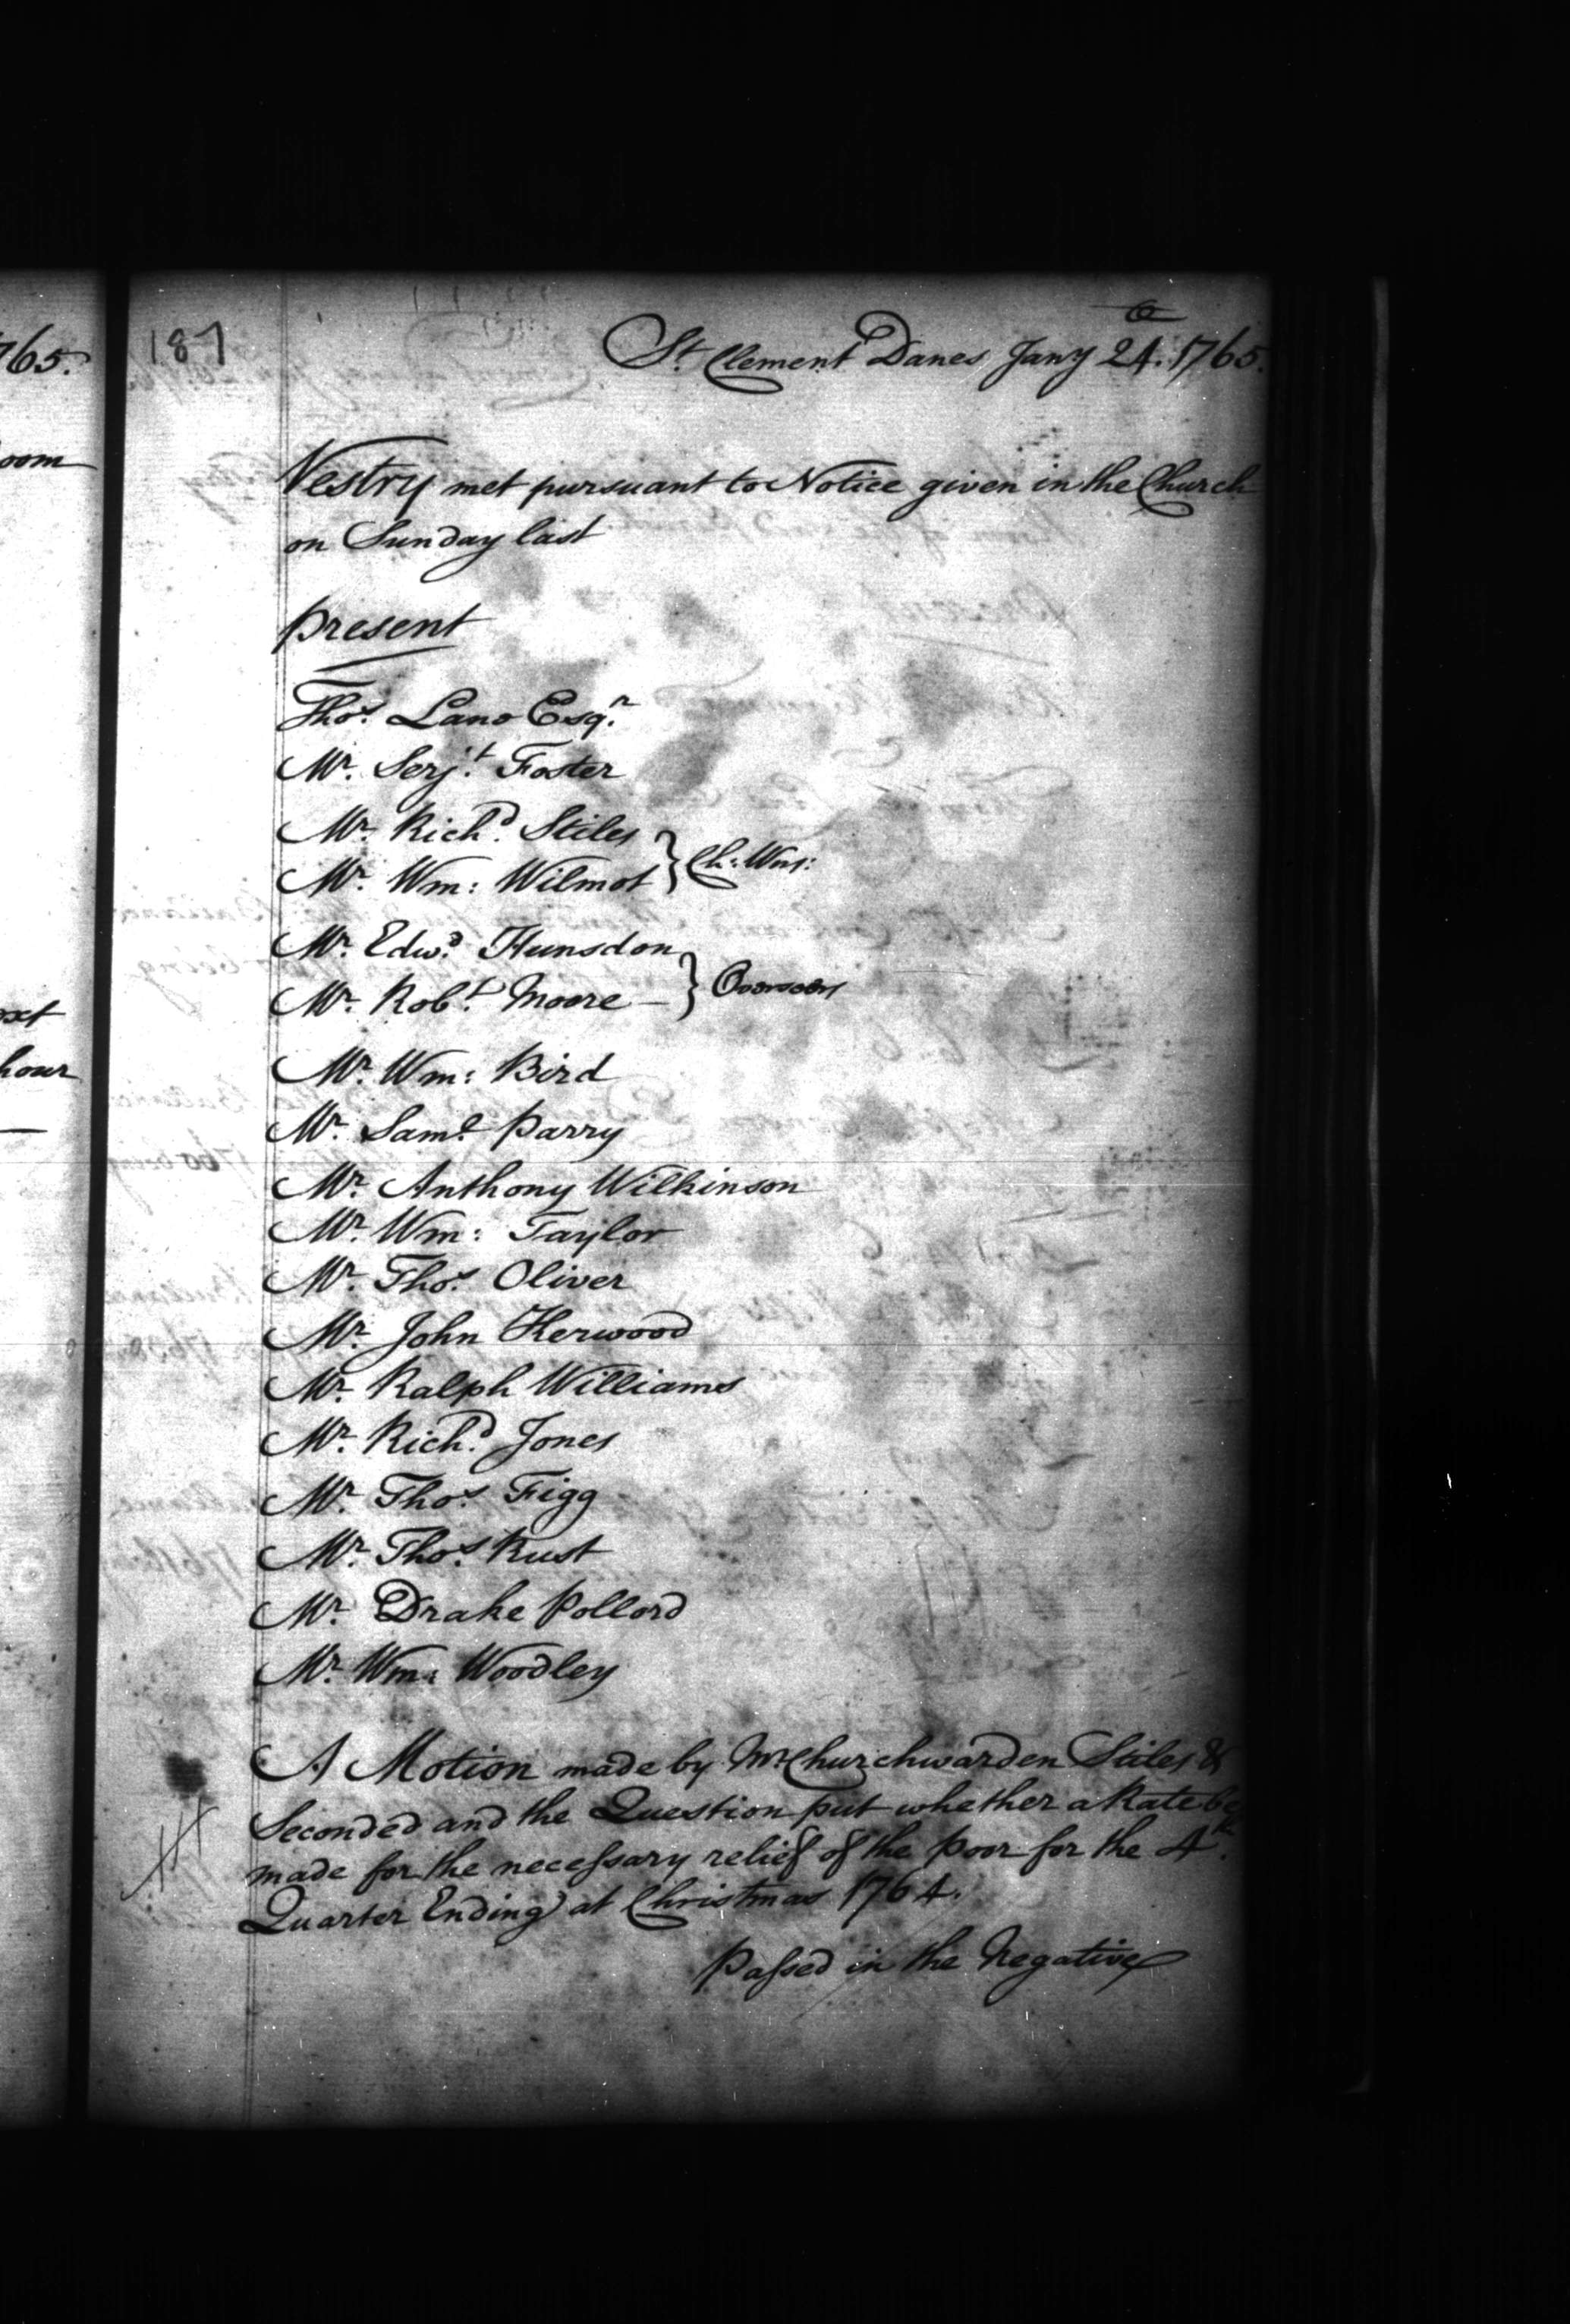 765.
oom
ext
hour
187
St. Clement Danes Jany 24. 1765.
Vestry met pursuant to Notice given in the Church
on Sunday last
Present
Thos. Lane Esqr.
Mr. Serjt. Foster
Mr. Richd. Stiles
Mr. Wm: Wilmot } Ch: Wns:
Mr. Edwd. Hunsdon
Mr. Robt. Moore — } Overseers
Mr. Wm: Bird
Mr. Saml. Parry
Mr. Anthony Wilkinson
Mr. Wm: Taylor
Mr. Thos. Oliver
Mr. John Kerwood
Mr. Ralph Williams
Mr. Richd. Jones
Mr. Thos. Figg
Mr. Thos. Rust
Mr. Drake Pollord
Mr. Wm: Woodley
A Motion made by Mr. Churchwarden Stiles &
Seconded and the Question put whether a Rate be
made for the necessary relief of the Poor for the 4th.
Quarter Ending at Christmas 1764.
Passed in the Negative